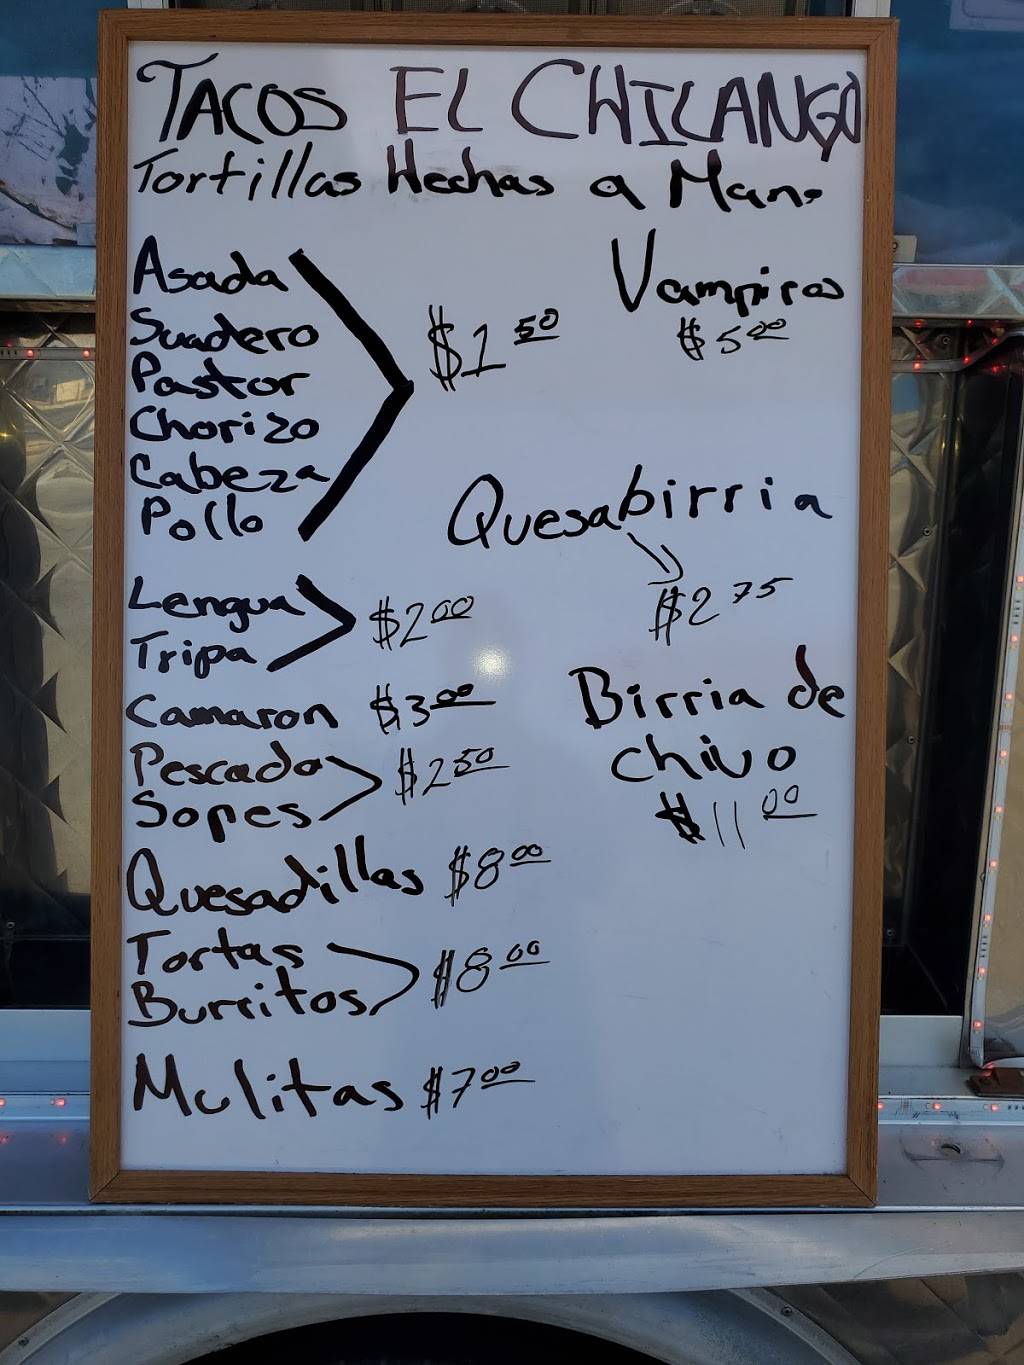 TACOS EL CHILANGO
Tortillas Hechas a Mano
Asada
Suadero
Pastor
Chorizo
Cabeza
Pollo
$1 50
Lengua
Tripa
$2 00
Camaron $3 00
Pescado
Sopes
$2 50
Quesadillas $8 00
Tortas
Burritos
$8 00
Mulitas $7 00
Vampiros
$5 00
Quesabirria
$2 75
Birria de
chivo
$11 00